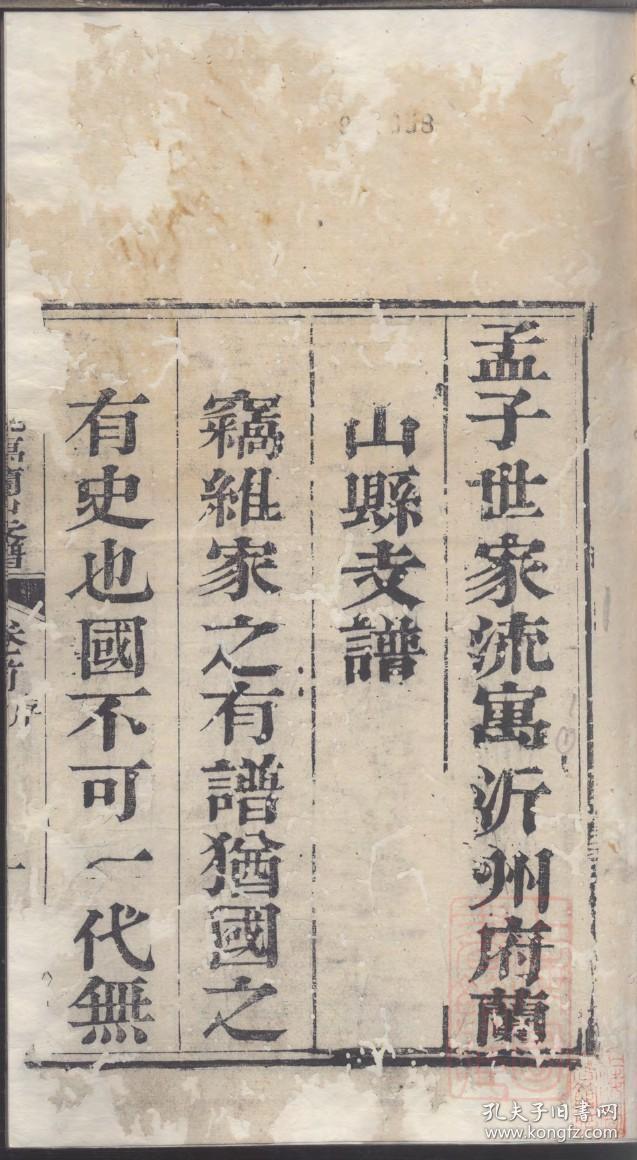 孟子世家流寓沂州府蘭
山縣支譜
竊維家之有譜猶國之
有史也國不可一代無
序
一
孔夫子旧书网
www.kongfz.com